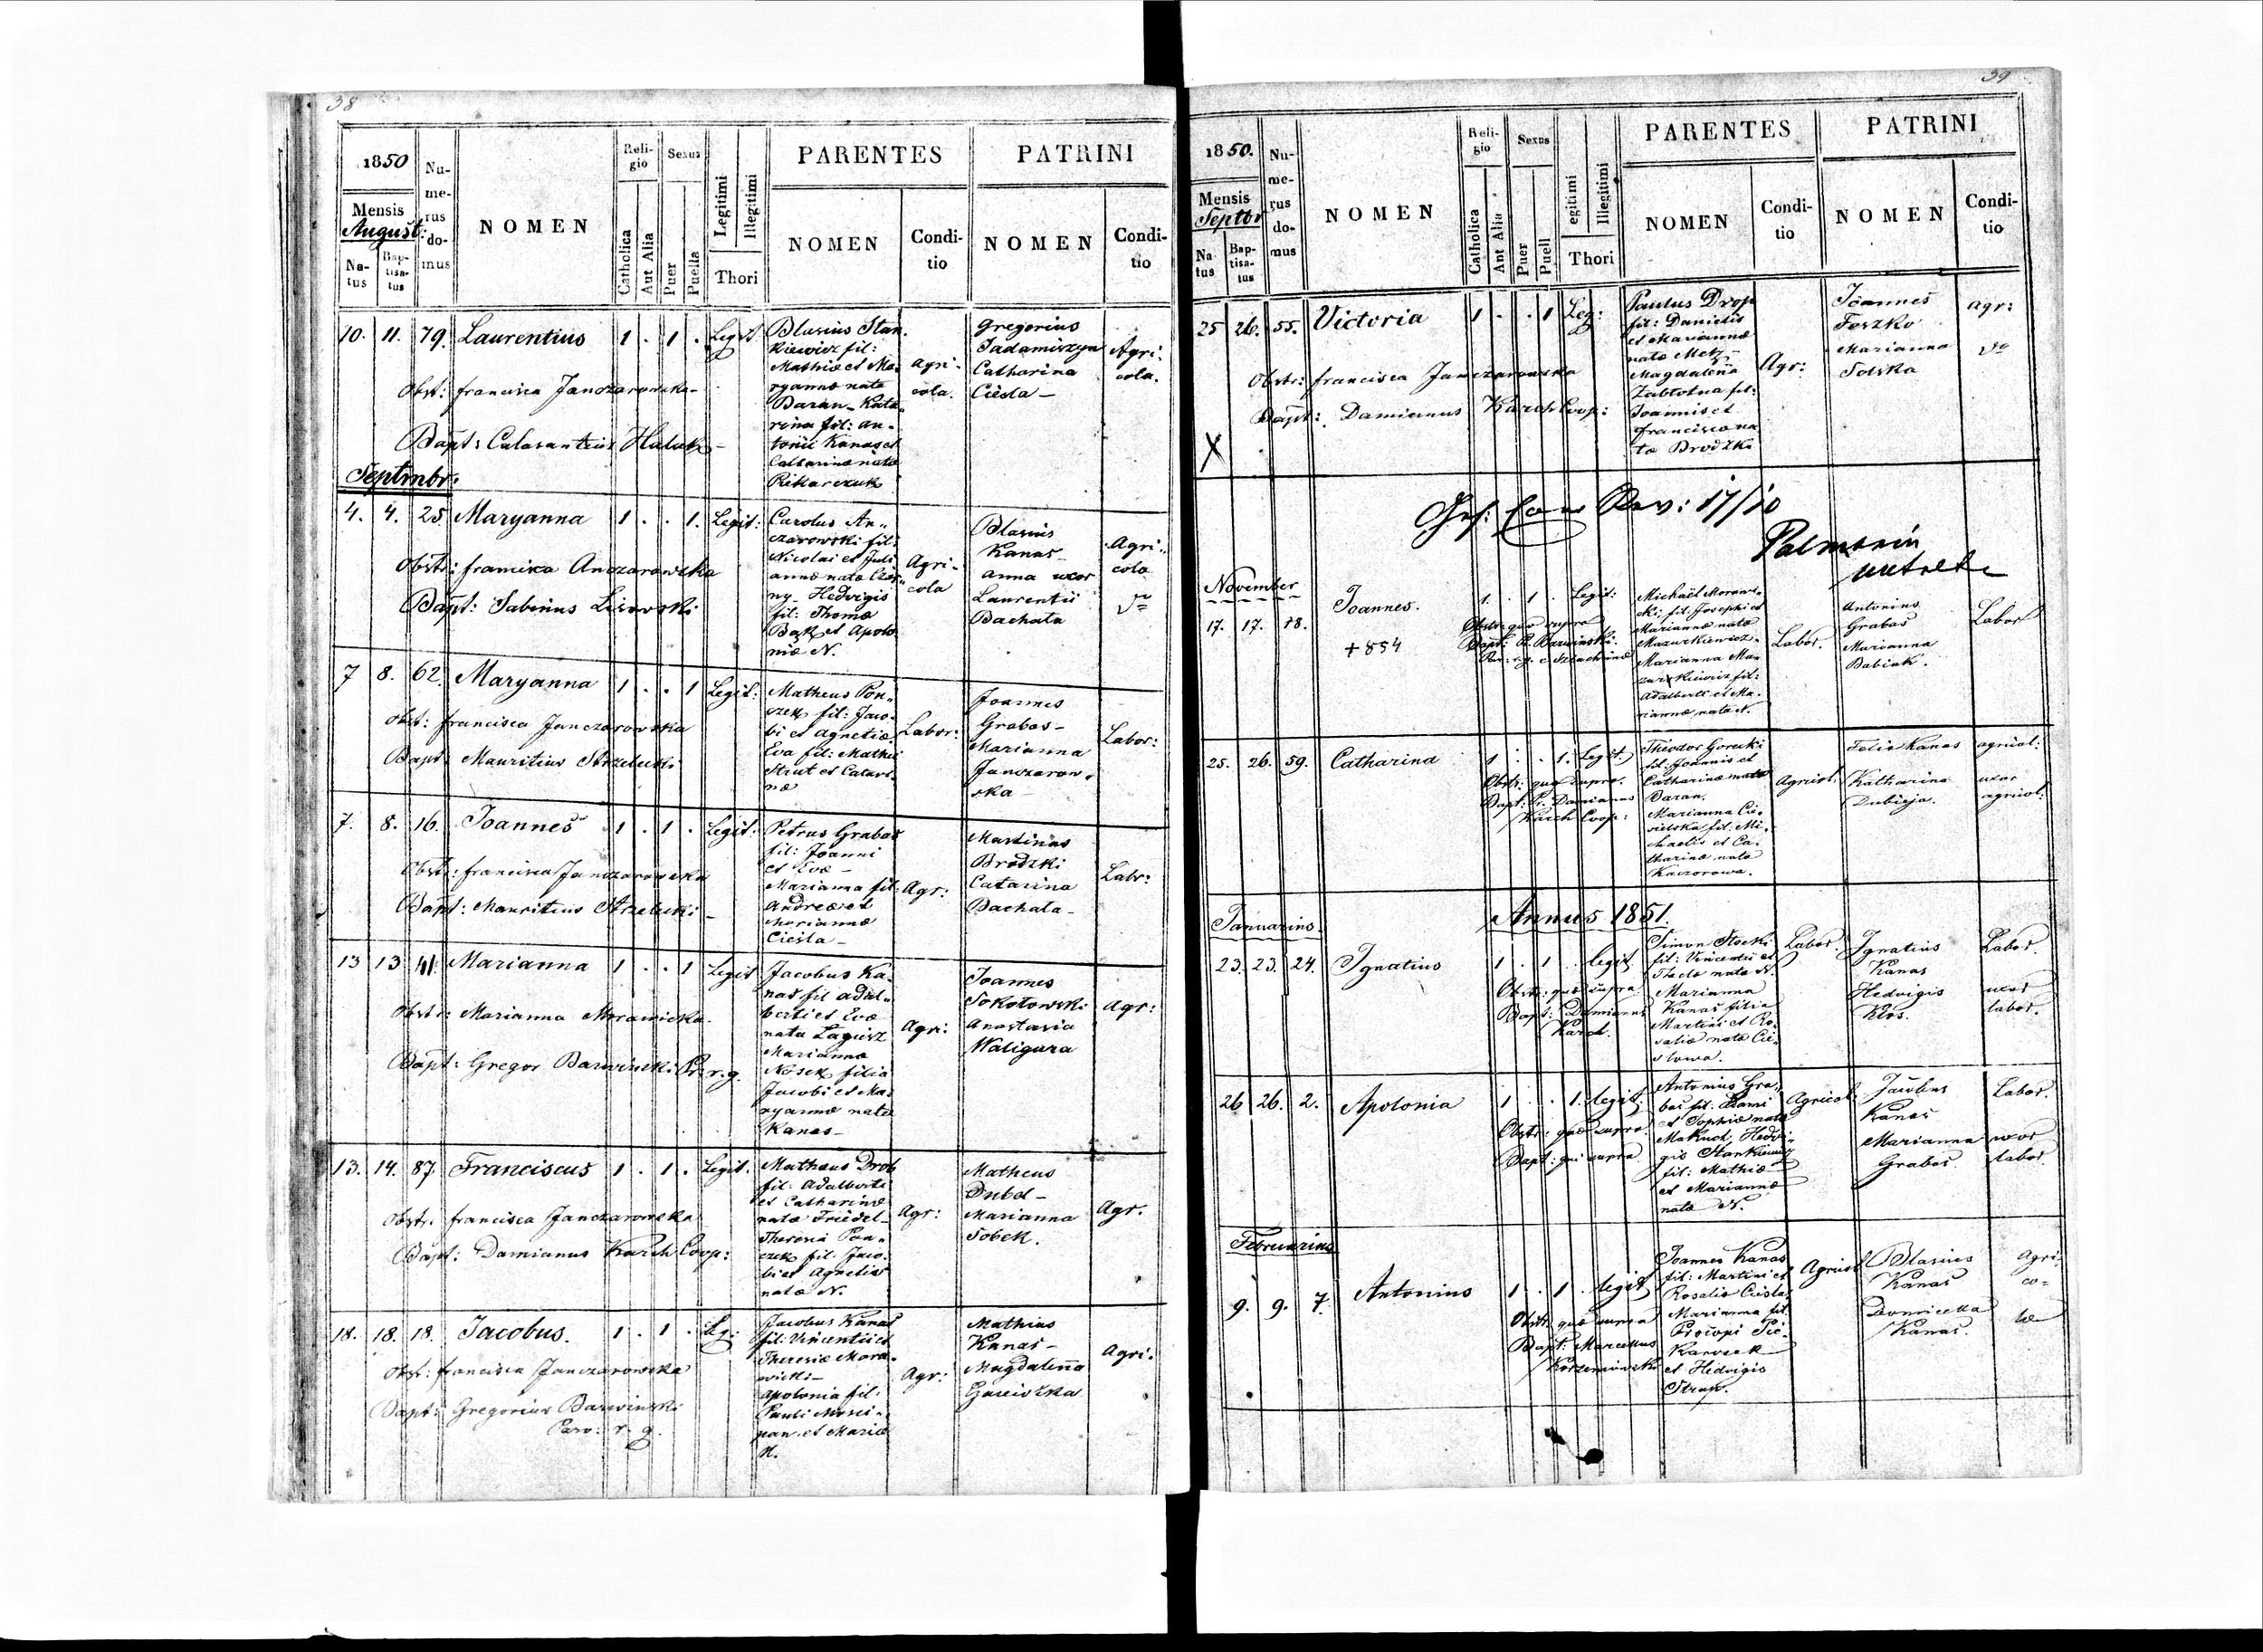 38
1850
Mensis
August:
Na-
tus
Bap-
tisa-
tus
Nu-
me-
rus
do-
mus
NOMEN
Reli-
gio
Catholica
Aut Alia
Sexus
Puer
Puella
Legitimi
Illegitimi
Thori
PARENTES
NOMEN
Condi-
tio
PATRINI
NOMEN
Condi-
tio
10. 11. 79. Laurentius 1 . 1 . Legit.
Obst: francisca Janczarowska-
Bapt: Calasantius
Blasius Stan-
kiewicz fil:
Mathiæ et Ma-
ryannæ nata
Baran - Kata-
rina fil: An-
tonii Kanas et
Catharinæ nata
Agri-
cola.
Gregorius
Catharina
Cieśla -
Agri-
cola.
Septmbr:
4. 4. 25 Maryanna 1 . . 1. Legit:
Obstr: francisca Anczarowska
Bapt: Sabinus Lisowski
Carolus An-
czarowski fil:
Nicolai et Juli
annæ nata
ny - Hedvigis
fil: Thomæ
Bak et Apolo
niæ N.
Agri-
cola
Blasius
Kanas -
Anna uxor
Laurentii
Bachata
Agri-
cola
7 8. 62. Maryanna 1 . . 1 Legit:
Obst: francisca Janczarowska
Bapt: Mauritius Strzelecki
Matheus Pon-
czek fil: Jaco-
bi et Agnetiæ
Eva fil: Mathei
Strut et Catari-
næ
Labor:
Joannes
Grabas -
Marianna
Janczarow-
ska -
Labor:
7. 8. 16. Joannes 1 . 1 . Legit:
Obstr: francisca Janczarowska
Bapt: Mauritius Strzelecki -
Petrus Grabas
fil: Joanni
et Evæ -
Marianna fil:
Andreæ et
Mariannæ
Cieśla -
Agr:
Martinus
Brodzki
Catarina
Bachata -
Labr:
13 13 41. Marianna 1 . . 1 Legit
Obstr: Marianna Morawicka
Bapt: Gregor Barwinski Pr: r. g.
Jacobus Ka-
nas fil Adal-
berti et Evæ
nata Lagusz
Marianna
Nosek filia
Jacobi et Ma-
ryannæ nata
Kanas -
Agr:
Joannes
Sokołowski
Anastasia
Waligura
Agr:
13. 14. 87. Franciscus 1 . 1 . Legit.
Obstr. francisca Janczarowska
Bapt: Damianus Karch Coop:
Matheus Drob
fil: Adalberti
et Catharinæ
nata Friedel -
Theresia Pon-
czek fil: Jaco-
bi et Agnetis
nata N.
Agr:
Matheus
Dubel -
Marianna
Sobek.
Agr.
18. 18. 18. Jacobus. 1 . 1 . Leg:
Obst: francisca Janczarowska
Bapt: Gregorius Barwinski
Paro: r. g.
Jacobus Kanas
fil: Vincentii et
Theresiæ Mora-
wicki -
Apolonia fil:
Pauli
et Mariæ
N.
Agr:
Mathias
Kanas -
Magdalena
Agri.
39
1850.
Mensis
Septbr
Na
tus
Bap-
tisa-
tus
Nu-
me-
rus
do-
mus
NOMEN
Reli-
gio
Catholica
Aut Alia
Sexus
Puer
Puell
egitimi
Illegitimi
Thori
PARENTES
NOMEN
Condi-
tio
PATRINI
NOMEN
Condi-
tio
25 26. 55. Victoria 1 . . 1 Leg:
Obstr: francisca Janczarowska
Bapt: Damianus Karch Coop:
X
Paulus Drop
fil: Danielis
et Mariannæ
nata Metz -
Magdalena
Zabłotna fil:
Joannis et
Franciscæ na
ta Brodzki
Agr:
Joannes
Feszko
Marianna
Solska
Agr:
Rev: 17/10
November
17. 17. 18. Joannes. 1. . 1 . Legit:
+ 854
Obstr: quæ supra
Bapt: P. Barwinski.
Michaël Morawi-
cki fil: Josephi et
Mariannæ nata
Mazurkiewicz -
Marianna Ma-
zurkiewicz fil:
Adalberti et Ma-
riannæ nata N.
Labor.
Antonius
Grabas
Marianna
Babiak.
Labor
25. 26. 59. Catharina 1 . . 1. Legit.
Obstr: quæ supra.
Bapt: Pr. Damianus
Karch Coop:
Theodor Gorecki
fil: Joannis et
Catharinæ nata
Baran.
Marianna Cie-
sielska fil: Mi-
chaelis et Ca-
tharinæ nata
Kaczorowa.
Agricol:
Felix Kanas
Katharina
Dubieja.
agricol:
uxor
agricol:
Annus 1851.
Januarius.
23. 23. 24. Ignatius 1 . 1 . legit.
Obstr: quæ supra
Bapt: Damianus
Karch.
Simon Stocki
fil: Vincentii et
Theclæ nata N.
Marianna
Kanas filia
Martini et Ro-
saliæ nata Cie-
slowa.
Labor.
Ignatius
Kanas
Hedvigis
Kłos.
Labor.
uxor
labor.
26 26. 2. Apolonia 1 . . 1. legit.
Obstr: quæ supra
Bapt: qui supra
Antonius Gra-
bas fil:
et Sophiæ nata
Makuch, Hedvi-
gis Stankiewicz
fil: Mathiæ
et Mariannæ
nata N.
Agricol:
Jacobus
Kanas
Marianna
Grabas.
Labor.
uxor
labor.
Februarius
9. 9. 7. Antonius 1 . 1 . legit.
Obstr: quæ supra
Bapt: Marcellus
Joannes Kanas
fil: Martini et
Rosaliæ Ciesla
Marianna fil.
Procopi Pie-
karczek
et Hedvigis
Strup.
Agricol
Blasius
Kanas
Domicella
Kanas.
Agri-
co-
læ